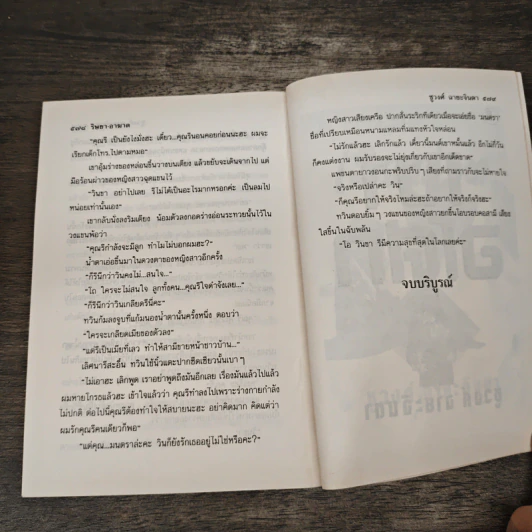 ๕๗๘ วิพยา-อาฆาต
"คุณริ เป็นยังไงมั่งฮะ เดี๋ยว...คุณรินอนคอยก่อนนะฮะ ผมจะ
เรียกเด็กโทร.ไปตามหมอ"
เขาอุ้มร่างของหล่อนขึ้นวางบนเตียง แล้วขยับจะเดินจากไป แต่
มือร้อนผ่าวของหญิงสาวฉุดแขนไว้
"วินขา อย่าไปเลย รีไม่ได้เป็นอะไรมากหรอกค่ะ เป็นลมไป
หน่อยเท่านั้นเอง"
เขากลับนั่งลงริมเตียง น้อมตัวลงกอดร่างอ่อนระทวยนั้นไว้ใน
วงแขนพ้อว่า
"คุณรีกำลังจะมีลูก ทำไมไม่บอกผมฮะ?"
น้ำตาเอ่อขึ้นมาในดวงตาของหญิงสาวอีกครั้ง
"ก็รีนึกว่าวินคงไม่...สนใจ..."
"โถ ใครจะไม่สนใจ ลูกทั้งคน...คุณรีใจดำจังเลย..."
"ก็รีนึกว่าวินเกลียดรีนี่คะ"
ทวินก้มลงจูบที่แก้มนองน้ำตานั้นครั้งหนึ่ง ตอบว่า
"ใครจะเกลียดเมียของตัวลง"
"แต่รีเป็นเมียที่เลว ทำให้สามีขายหน้าชาวบ้าน..."
เลิศนารีสะอื้น ทวินใช้นิ้วแตะปากซีดเซียวนั้นเบาๆ
"ไม่เอาฮะ เลิกพูด เราอย่าพูดถึงมันอีกเลย เรื่องมันแล้วไปแล้ว
ผมหายโกรธแล้วฮะ เข้าใจแล้วว่า คุณรีทำลงไปเพราะร่างกายกำลัง
ไม่ปกติ ต่อไปนี้คุณรีต้องทำใจให้สบายนะฮะ อย่าคิดมาก คิดแต่ว่า
ผมรักคุณรีคนเดียวก็พอ"
"แต่คุณ...มนตราล่ะคะ วินก็ยังรักเธออยู่ไม่ใช่หรือคะ?"
ชูวงศ์ ฉายะจินดา ๕๗๙
หญิงสาวเสียงเครือ ปากสั่นระริกทีเดียวเมื่อจะเอ่ยชื่อ 'มนตรา'
ชื่อที่เปรียบเหมือนหนามแหลมทิ่มแทงหัวใจหล่อน
"ไม่รักแล้วฮะ เลิกรักแล้ว เดี๋ยวนี้มนต์เขาหมั้นแล้ว อีกไม่กี่วัน
ก็คงแต่งงาน ผมรับรองจะไม่ยุ่งเกี่ยวกับเขาอีกเด็ดขาด"
แพขนตายาวงอนกะพริบปริบๆ เสียงที่ถามราวกับจะไม่หายใจ
"จริงหรือเปล่าคะ วิน"
"ก็คุณรีอยากให้จริงไหมล่ะฮะถ้าอยากให้จริงก็จริงฮะ"
ทวินตอบยิ้มๆ วงแขนของหญิงสาวยกขึ้นโอบรอบคอสามี เสียง
ใสขึ้นในฉับพลัน
"โอ วินขา รีมีความสุขที่สุดในโลกเลยค่ะ"
จบบริบูรณ์